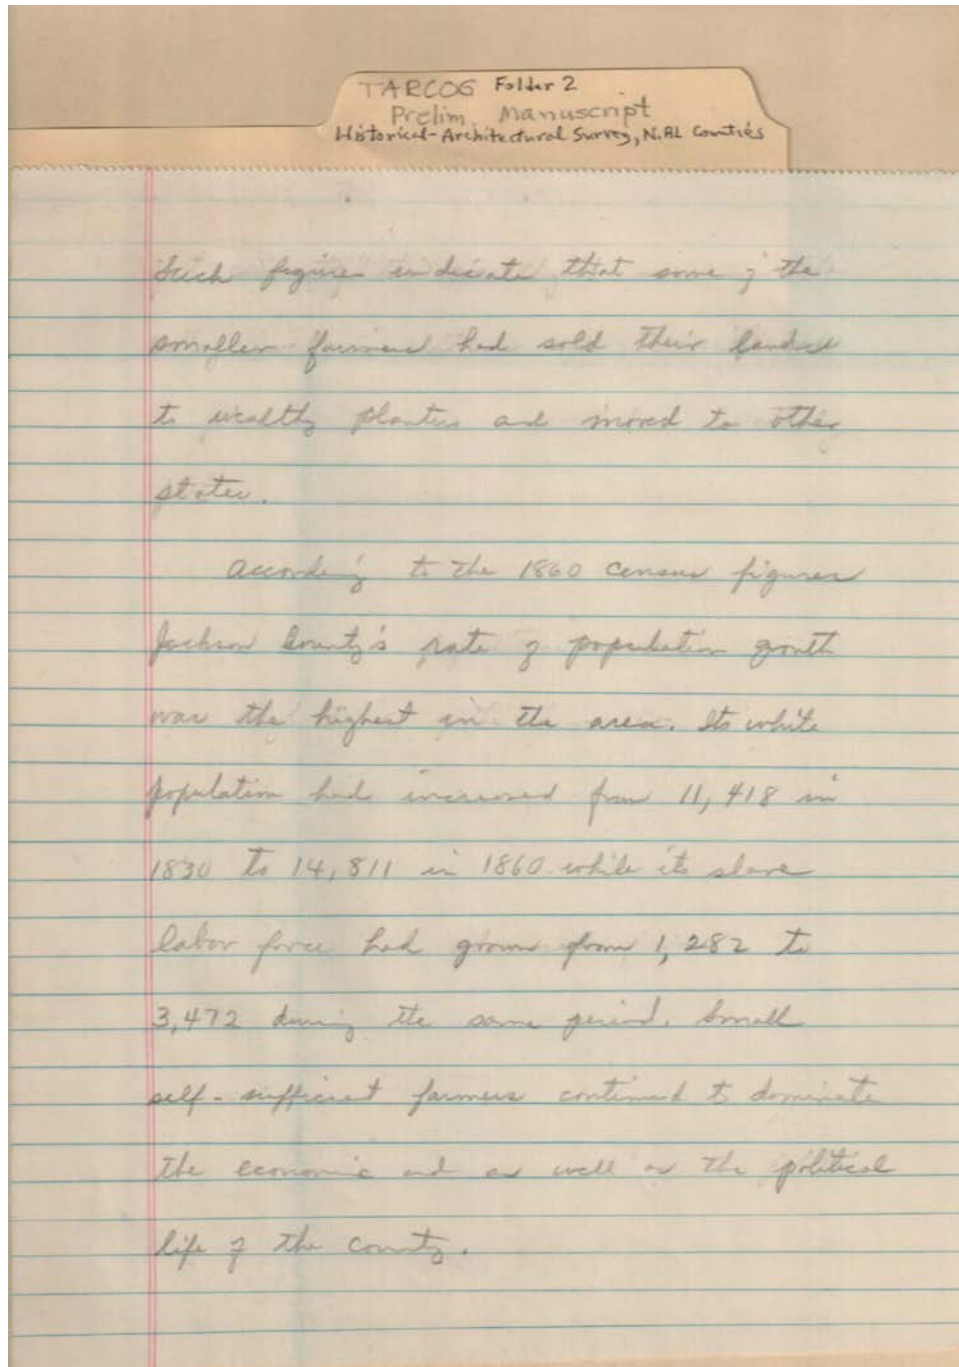 TARCOG Folder 2
Prelim Manuscript
Historical-Architectural Survey, N.AL Counties
Such figures indicate that some of the
smaller farmers had sold their lands
to wealthy planters and moved to other
states.
According to the 1860 census figures
Jackson County's rate of population growth
was the highest in the area. Its white
population had increased from 11,418 in
1830 to 14,811 in 1860 while its slave
labor force had grown from 1,282 to
3,472 during the same period. Small
self-sufficient farmers continued to dominate
the economic and as well as the political
life of the county.